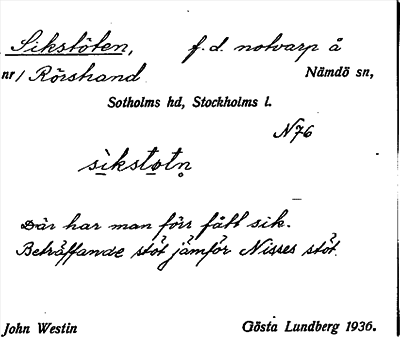 Sikstöten, f.d. notvarp å
nr 1 Rörstrand Nämdö sn,
Sotholms hd, Stockholms l.
N76
sìkstotn̥
Där har man förr fått sik.
Beträffande stöt jämför Nisses stöt.
John Westin Gösta Lundberg 1936.